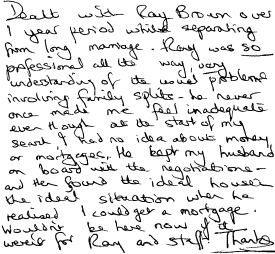 Dealt with Ray Brown over
1 year period whilst separating
from long marriage. Ray was so
professional all the way, very
understanding of the usual problems
involving family splits - he never
once made me feel inadequate
even though at the start of my
search I had no idea about money
or mortgages. He kept my husband
on board with the negotiations -
and then found the ideal house in
the ideal situation when he
realised I could get a mortgage.
Wouldn't be here now if it
weren't for Ray and staff. Thanks